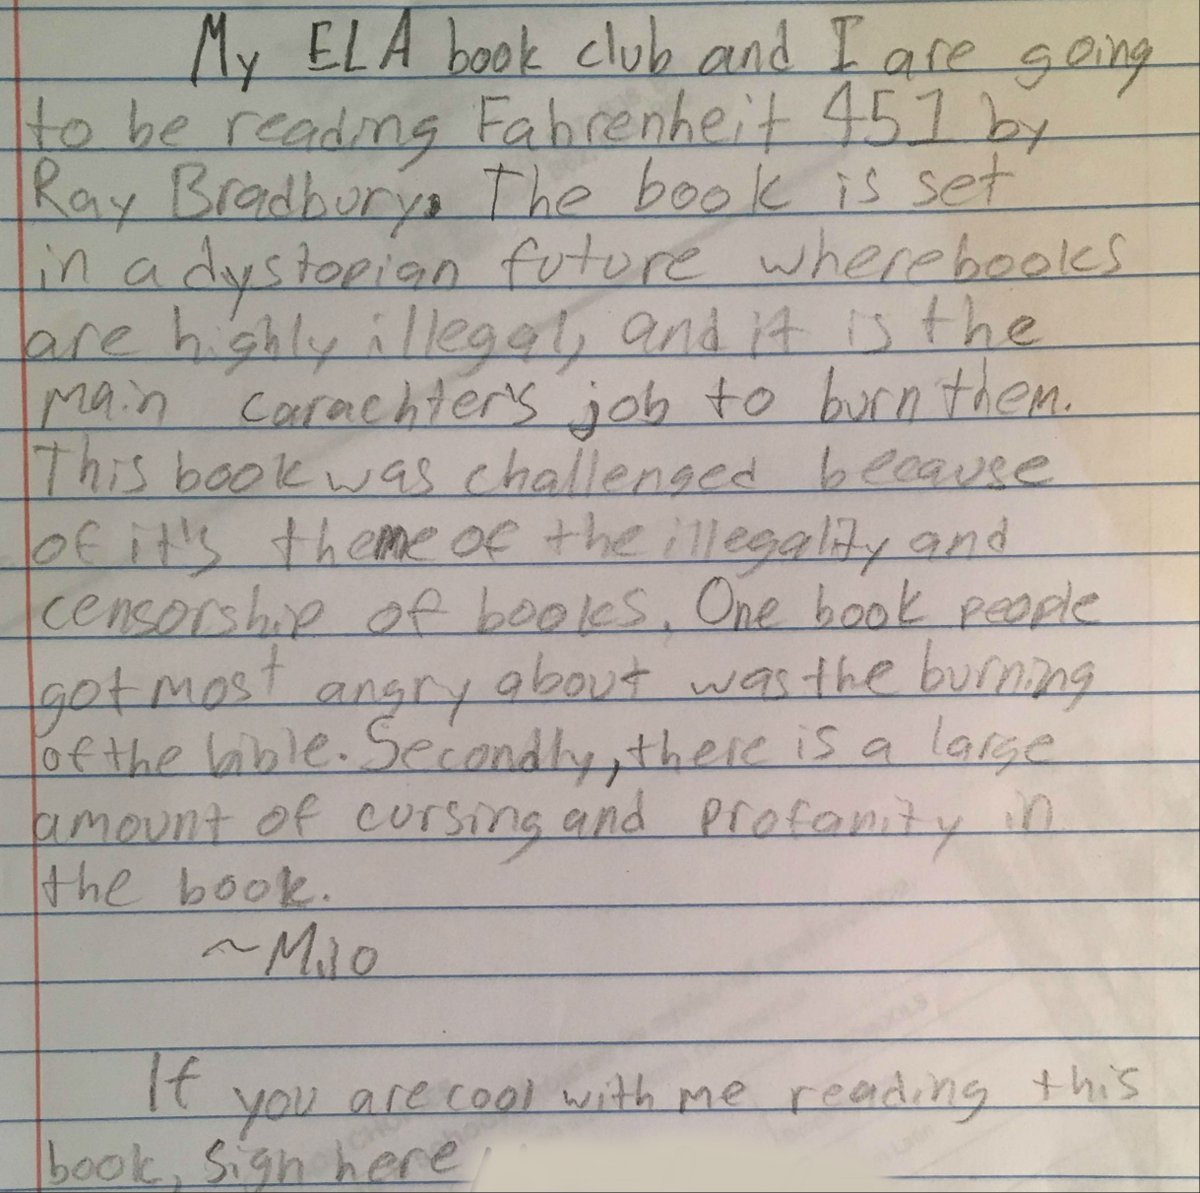 My ELA book club and I are going
to be reading Fahrenheit 451 by
Ray Bradbury. The book is set
in a dystopian future where books
are highly illegal, and it is the
main carachter's job to burn them.
This book was challenged because
of it's theme of the illegality and
censorship of books. One book people
got most angry about was the burning
of the bible. Secondly, there is a large
amount of cursing and profanity in
the book.
~Milo
If you are cool with me reading this
book, sign here